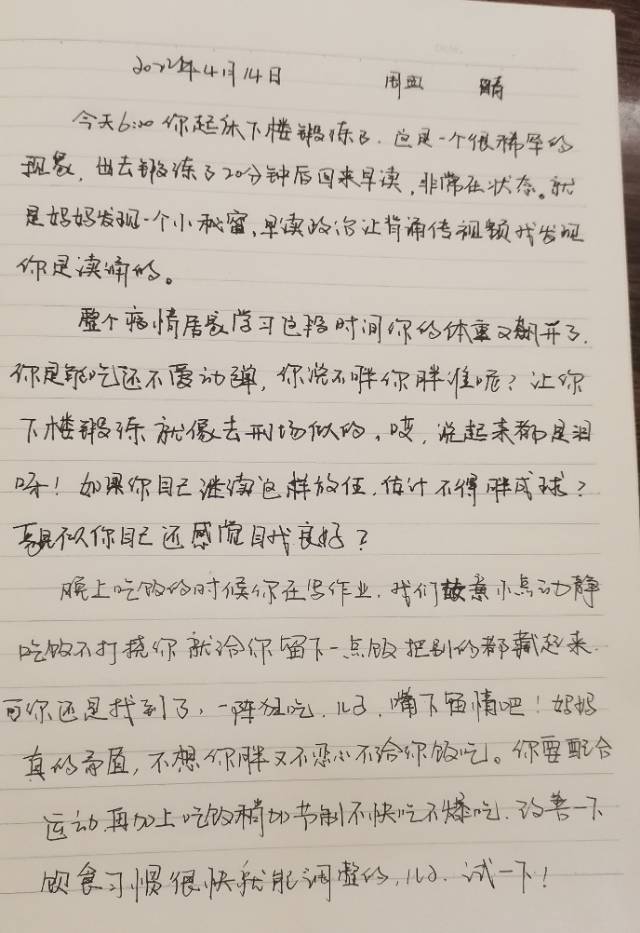 2022年4月14日 周四 晴
今天6:20你起床下楼锻炼了.这是一个很稀罕的
现象,出去锻炼了20分钟后回来早读,非常在状态。就
是妈妈发现一个小秘密,早读政治让背诵传视频我发现
你是读诵的。
整个疫情居家学习这段时间你的体重又飙升了.
你是能吃还不爱动弹,你说不胖你胖谁呢?让你
下楼锻炼就像去刑场似的。哎,说起来都是泪
呀!如果你自己继续这样放任,估计不得胖成球?
你自己还感觉自我良好?
晚上吃饭的时候你在写作业,我们故意小点动静
吃饭不打挠你就给你留下一点饭把别的都藏起来.
可你还是找到了,一阵狂吃.儿子,嘴下留情吧!妈妈
真的矛盾,不想你胖又不忍心不给你饭吃。你要配合
运动再加上吃饭稍加节制不快吃不爆吃.改善一下
饮食习惯很快就能调整的,儿子.试一下!